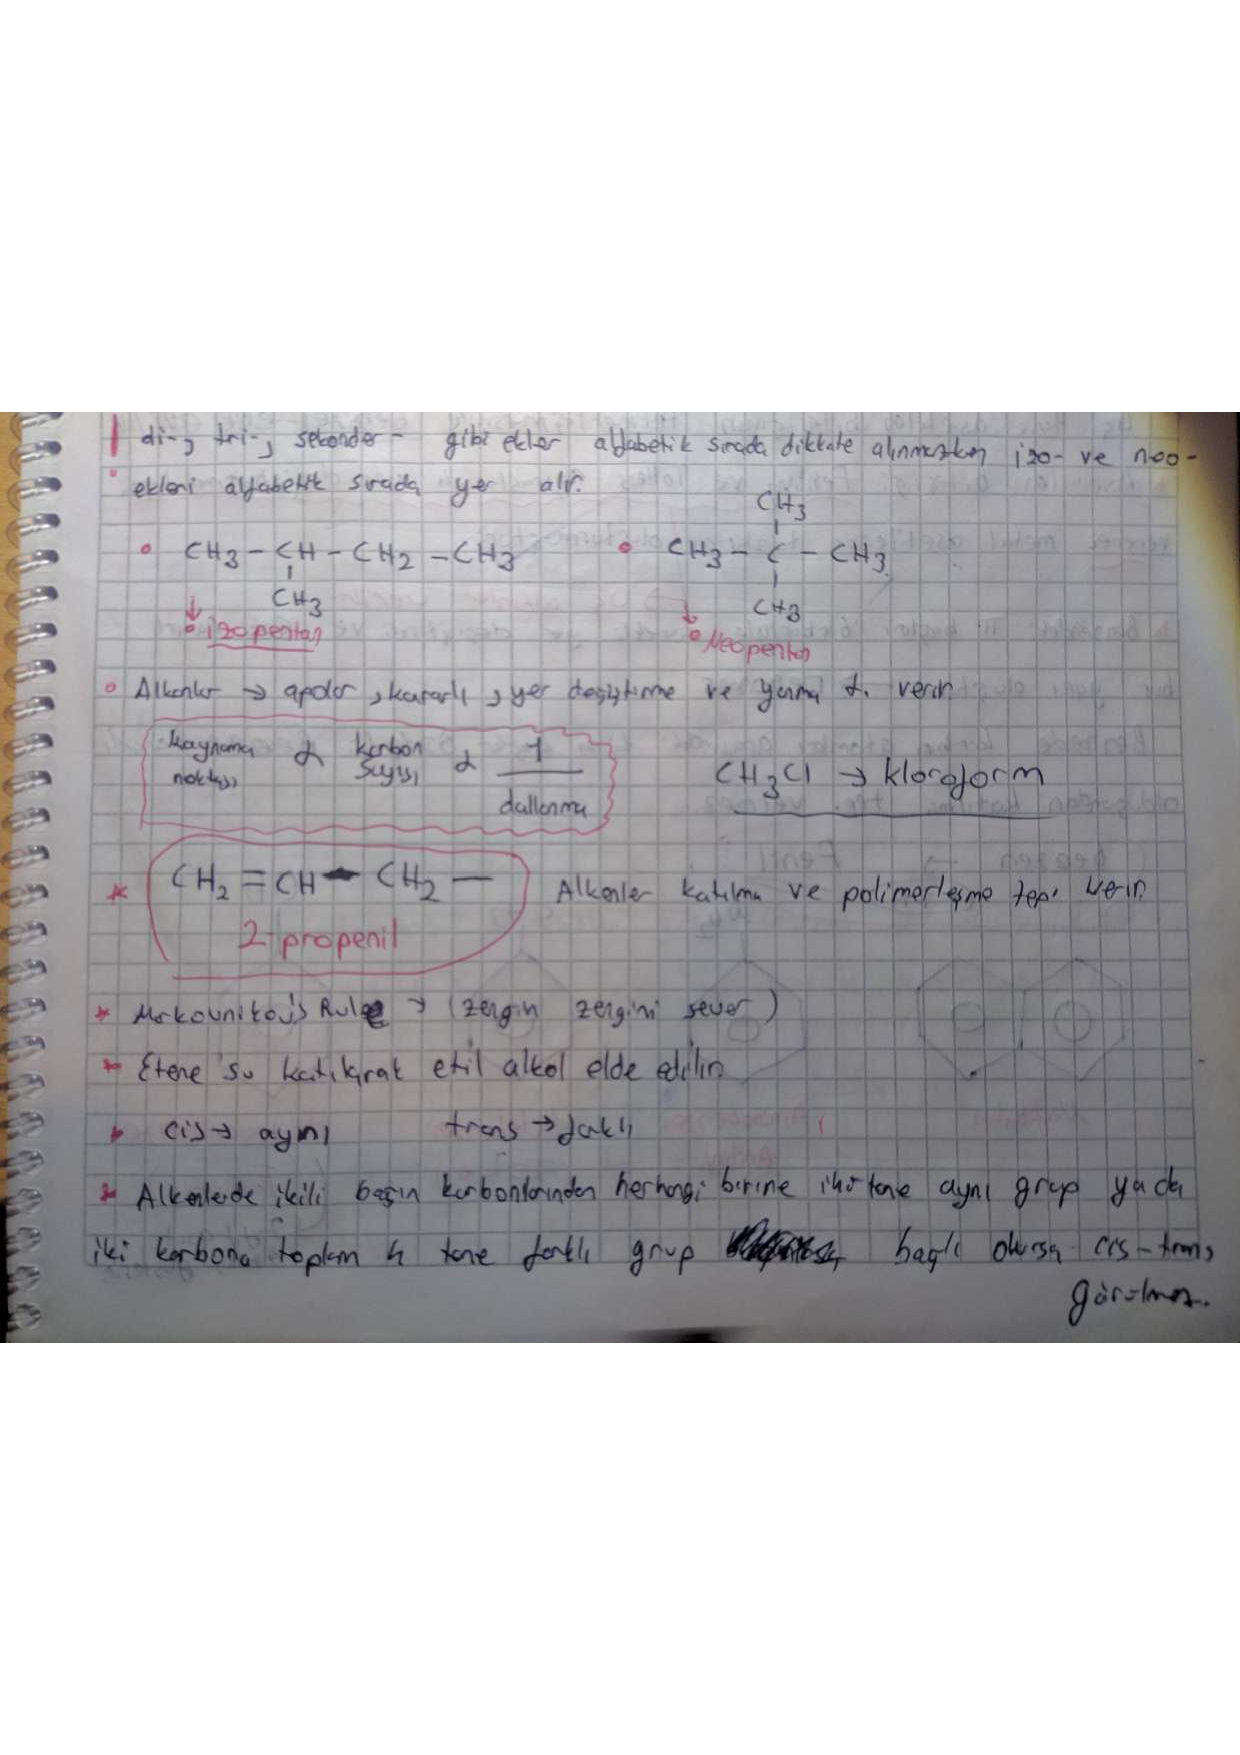 ! di-, tri-, sekonder- gibi ekler alfabetik sırada dikkate alınmazken izo- ve neo-
ekleri alfabetik sırada yer alır.
CH3
CH3 - CH - CH2 - CH3 CH3 - C - CH3
CH3 CH3
izopentan Neopentan
Alkanlar → apolar, kararlı, yer değiştirme ve yanma t. verir.
kaynama noktası α karbon sayısı α 1 / dallanma
CH3Cl → kloroform
CH2 = CH - CH2 -
Alkenler katılma ve polimerleşme tep. verir.
2-propenil
* Markovnikov's Rule → (zengin zengini sever)
* Etene su katılarak etil alkol elde edilir.
* cis → aynı trans → farklı
* Alkenlerde ikili bağın karbonlarından herhangi birine iki tane aynı grup ya da
iki karbona toplam 4 tane farklı grup bağlı olursa cis-trans
görülmez.